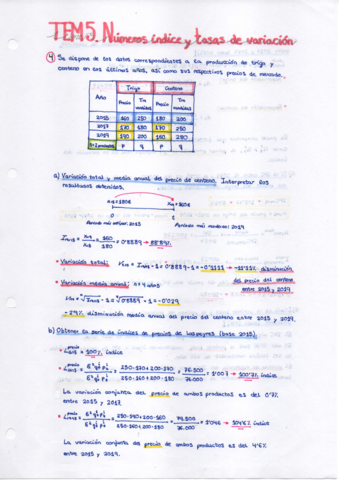 TEM5. Números índice y tasas de variación
4 Se dispone de los datos correspondientes a la producción de trigo y
centeno en los últimos años, así como sus respectivos precios de mercado.
Trigo Centeno
Año Precio Tm vendidas Precio Tm vendidas
2015 160 250 180 200
2017 170 180 170 250
2019 190 200 160 280
p q p q
a) Variación total y media anual del precio de centeno. Interpretar los
resultados obtenidos.
0 t
Periodo más antiguo: 2015 Periodo más moderno: 2019
= 160/180 = 0'8889 → 88'89%
• Variación total: = 0'8889 - 1 = -0'1111 → -11'11% disminución
del precio del centeno
entre 2015 y 2019
• Variación media anual: n = 4 años
- 1 = -0'029
- 2'9% disminución media anual del precio del centeno entre 2015 y 2019.
b) Obtener la serie de índices de precios de Laspeyres (base 2015).
precio
= 100% índice
precio
= 250·170+200·170 / 250·160+200·180 = 76.500 / 76.000 = 1'007 → 100'7% índice
La variación conjunta del precio de ambos productos es del 0'7%
entre 2015 y 2017.
precio
= 250·190+200·160 / 250·160+200·180 = 79.500 / 76.000 = 1'046 → 104'6% índice
La variación conjunta del precio de ambos productos es del 4'6%
entre 2015 y 2019.